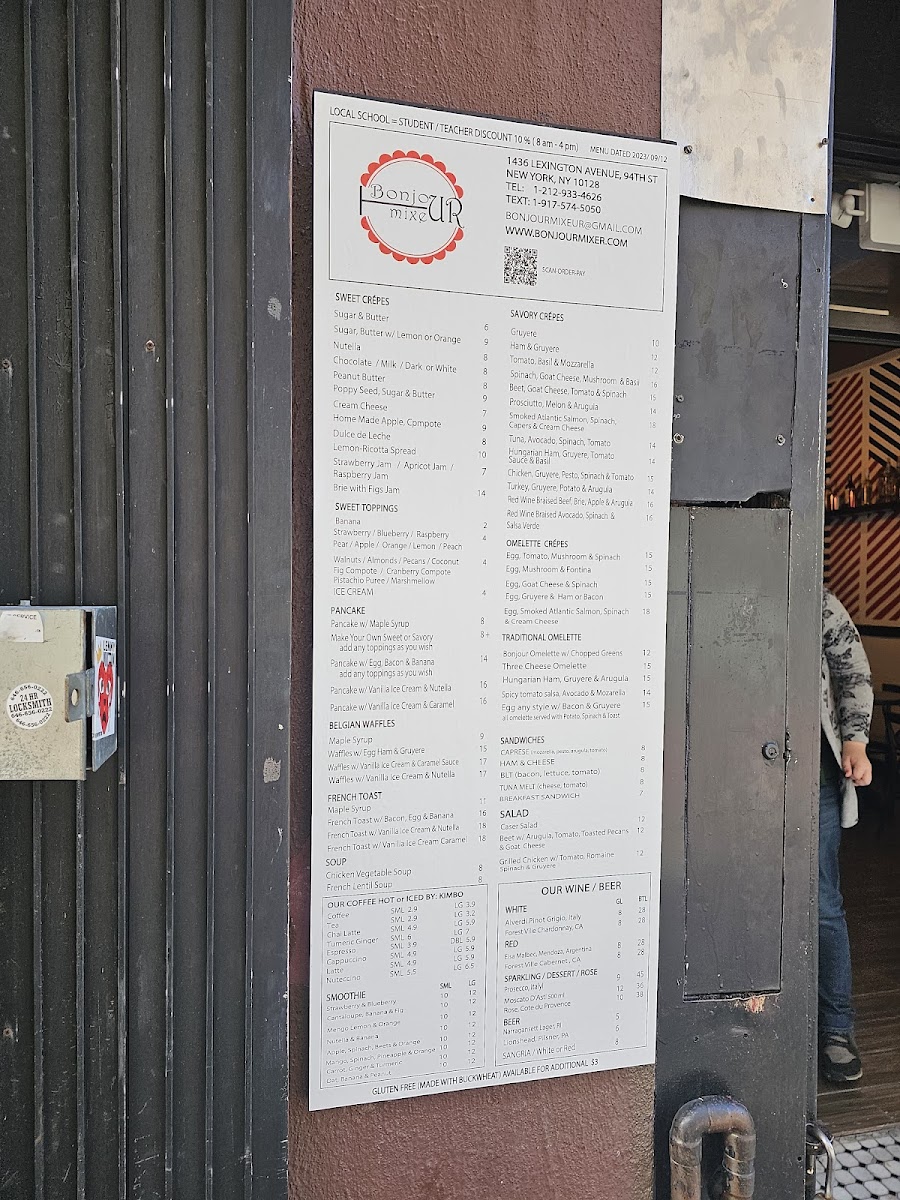 LOCAL SCHOOL = STUDENT / TEACHER DISCOUNT 10 % ( 8 am - 4 pm) MENU DATED 2023/ 09/12
Bonjo
UR
mixe
1436 LEXINGTON AVENUE, 94TH ST
NEW YORK, NY 10128
TEL: 1-212-933-4626
TEXT: 1-917-574-5050
BONJOURMIXEUR@GMAIL.COM
WWW.BONJOURMIXER.COM
SCAN-ORDER-PAY
SWEET CRÊPES
Sugar & Butter 6
Sugar, Butter w/ Lemon or Orange 9
Nutella 8
Chocolate / Milk / Dark or White 8
Peanut Butter 8
Poppy Seed, Sugar & Butter 9
Cream Cheese 7
Home Made Apple, Compote 9
Dulce de Leche 8
Lemon-Ricotta Spread 10
Strawberry Jam / Apricot Jam /
Raspberry Jam 7
Brie with Figs Jam 14
SWEET TOPPINGS
Banana 2
Strawberry / Blueberry / Raspberry 4
Pear / Apple / Orange / Lemon / Peach
Walnuts / Almonds / Pecans / Coconut 4
Fig Compote / Cranberry Compote
Pistachio Puree / Marshmellow
ICE CREAM 4
PANCAKE
Pancake w/ Maple Syrup 8
Make Your Own Sweet or Savory 8+
add any toppings as you wish
Pancake w/ Egg, Bacon & Banana 14
add any toppings as you wish
Pancake w/ Vanilla Ice Cream & Nutella 16
Pancake w/ Vanilla Ice Cream & Caramel 16
BELGIAN WAFFLES
Maple Syrup 9
Waffles w/ Egg Ham & Gruyere 15
Waffles w/ Vanilla Ice Cream & Caramel Sauce 17
Waffles w/ Vanilla Ice Cream & Nutella 17
FRENCH TOAST
Maple Syrup 11
French Toast w/ Bacon, Egg & Banana 16
French Toast w/ Vanilla Ice Cream & Nutella 18
French Toast w/ Vanilla Ice Cream Caramel 18
SOUP
Chicken Vegetable Soup 8
French Lentil Soup 8
OUR COFFEE HOT or ICED BY: KIMBO
Coffee SML 2.9 LG 3.9
Tea SML 2.9 LG 3.2
Chai Latte SML 4.9 LG 5.9
Turmeric Ginger SML 6 LG 7
Espresso SML 3.9 DBL 5.9
Cappuccino SML 4.9 LG 5.9
Latte SML 4.9 LG 5.9
Nuteccino SML 5.5 LG 6.5
SMOOTHIE SML LG
Strawberry & Blueberry 10 12
Cantaloupe, Banana & Fig 10 12
Mango Lemon & Orange 10 12
Nutella & Banana 10 12
Apple, Spinach, Beets & Orange 10 12
Mango, Spinach, Pineapple & Orange 10 12
Carrot, Ginger & Turmeric 10 12
Oat, Banana & Peanut 10 12
SAVORY CRÊPES
Gruyere 10
Ham & Gruyere 12
Tomato, Basil & Mozzarella 12
Spinach, Goat Cheese, Mushroom & Basil 16
Beet, Goat Cheese, Tomato & Spinach 15
Prosciutto, Melon & Arugula 14
Smoked Atlantic Salmon, Spinach, 18
Capers & Cream Cheese
Tuna, Avocado, Spinach, Tomato 14
Hungarian Ham, Gruyere, Tomato 14
Sauce & Basil
Chicken, Gruyere, Pesto, Spinach & Tomato 15
Turkey, Gruyere, Potato & Arugula 14
Red Wine Braised Beef, Brie, Apple & Arugula 16
Red Wine Braised Avocado, Spinach & 16
Salsa Verde
OMELETTE CRÊPES
Egg, Tomato, Mushroom & Spinach 15
Egg, Mushroom & Fontina 15
Egg, Goat Cheese & Spinach 15
Egg, Gruyere & Ham or Bacon 15
Egg, Smoked Atlantic Salmon, Spinach 18
& Cream Cheese
TRADITIONAL OMELETTE
Bonjour Omelette w/ Chopped Greens 12
Three Cheese Omelette 15
Hungarian Ham, Gruyere & Arugula 15
Spicy tomato salsa, Avocado & Mozarella 14
Egg any style w/ Bacon & Gruyere 15
all omelette served with Potato, Spinach & Toast
SANDWICHES
CAPRESE (mozzarella, pesto, arugula, tomato) 8
HAM & CHEESE 8
BLT (bacon, lettuce, tomato) 6
TUNA MELT (cheese, tomato) 8
BREAKFAST SANDWICH 7
SALAD
Caser Salad 12
Beet w/ Arugula, Tomato, Toasted Pecans 12
& Goat Cheese
Grilled Chicken w/ Tomato, Romaine 12
Spinach & Gruyere
OUR WINE / BEER
GL BTL
WHITE
Alverdi Pinot Grigio, Italy 8 28
Forest Ville Chardonnay, CA 8 28
RED
Elsa Malbec, Mendoza, Argentina 8 28
Forest Ville Cabernet , CA 8 28
SPARKLING / DESSERT / ROSE
Prosecco, Italy 9 45
Moscato D'Asti 500ml 12 36
Rose, Cote du Provence 10 38
BEER
Narragansett Lager, RI 5
Lionshead, Pilsner, PA 6
SANGRIA / White or Red 8
GLUTEN FREE (MADE WITH BUCKWHEAT) AVAILABLE FOR ADDITIONAL $3
SERVICE
646-656-0222
24 HR
LOCKSMITH
646-656-0222